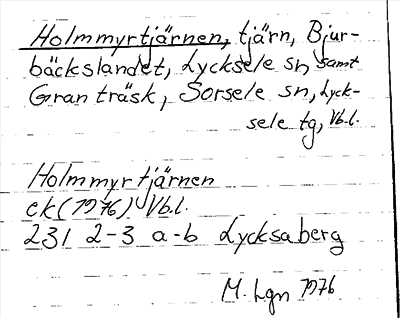 Holmmyrtjärnen, tjärn, Bjur-
bäckslandet, Lycksele sn samt
Granträsk, Sorsele sn, Lyck-
sele tg, Vb.l.
Holmmyrtjärnen
ek (1976) Vb.l.
231 2-3 a-b Lycksaberg
M. Lgn 1976